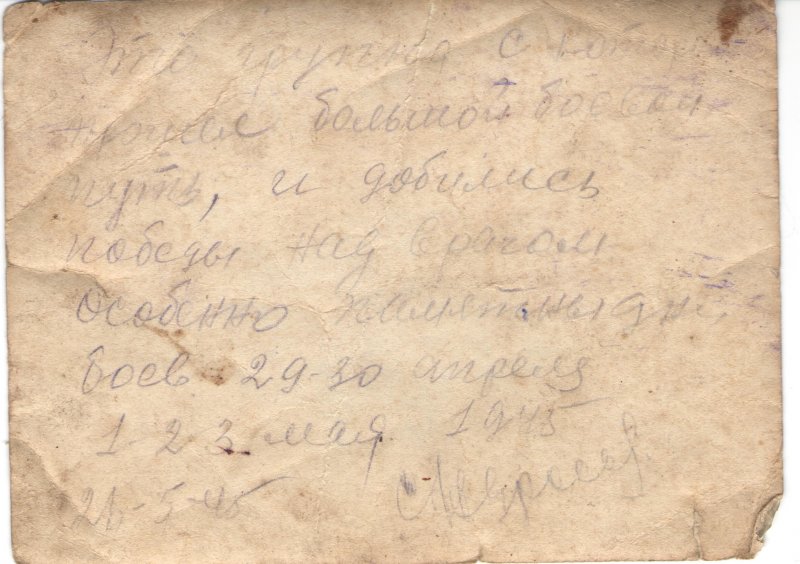 Это группа с котор
прошел большой боевой
путь, и добились
победы над врагом
особенно памятны дни
боев 29-30 апреля
1-2 3 мая 1945
26-5-45